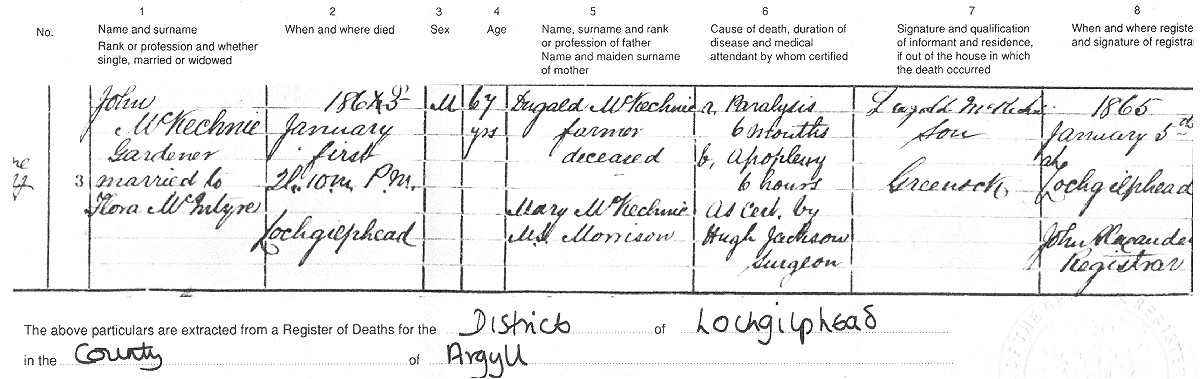 1 2 3 4 5 6 7 8
No.
Name and surname
Rank or profession and whether
single, married or widowed
When and where died
Sex
Age
Name, surname and rank
or profession of father
Name and maiden surname
of mother
Cause of death, duration of
disease and medical
attendant by whom certified
Signature and qualification
of informant and residence,
if out of the house in which
the death occurred
When and where registe
and signature of registra
3
John
McKechnie
Gardener
married to
Flora McIntyre
January
first
2h. 10m. P.M.
Lochgilphead
M
67
yrs
Dugald McKechnie
farmer
deceased
Mary McKechnie
M.S. Morrison
a, Paralysis
6 months
b, Apoplexy
6 hours
As cert. by
Hugh Jackson
Surgeon
Dugald McKechnie
Son
Greenock
1865
January 5th
at
Lochgilphead
John Alexander
Registrar
The above particulars are extracted from a Register of Deaths for the District of Lochgilphead
in the County of Argyll